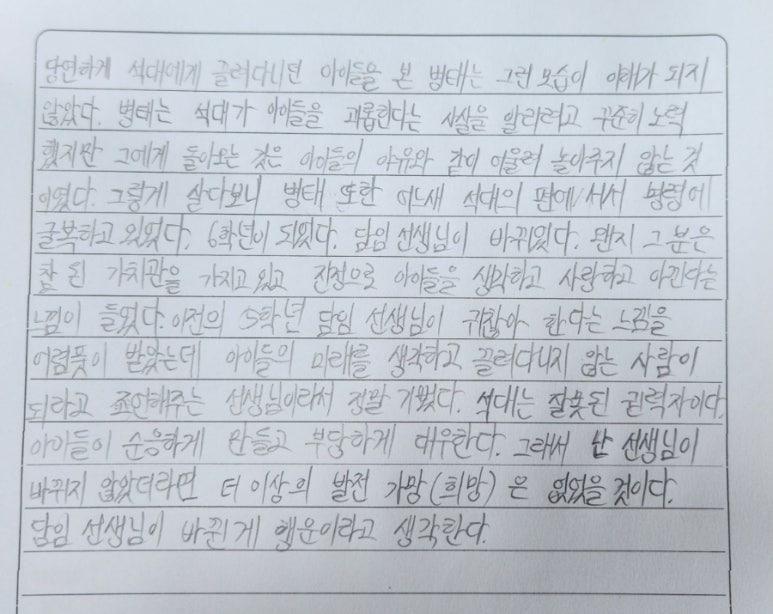 당연하게 석대에게 끌려다니던 아이들을 본 병태는 그런 모습이 이해가 되지
않았다. 병태는 석대가 아이들을 괴롭힌다는 사실을 알리려고 꾸준히 노력
했지만 그에게 돌아오는 것은 아이들의 야유와 같이 어울려 놀아주지 않는 것
이였다. 그렇게 살다보니 병태 또한 어느새 석대의 편에 서서 명령에
굴복하고 있었다. 6학년이 되었다. 담임 선생님이 바뀌었다. 왠지 그 분은
참 된 가치관을 가지고 있고 진정으로 아이들을 생각하고 사랑하고 아낀다는
느낌이 들었다. 이전의 5학년 담임 선생님이 귀찮아 한다는 느낌을
어렴풋이 받았는데 아이들의 미래를 생각하고 끌려다니지 않는 사람이
되라고 조언해주는 선생님이라서 정말 기뻤다. 석대는 잘못된 권력자이다.
아이들이 순응하게 만들고 부당하게 대우한다. 그래서 난 선생님이
바뀌지 않았더라면 더 이상의 발전 가망(희망)은 없었을 것이다.
담임 선생님이 바뀐 게 행운이라고 생각한다.